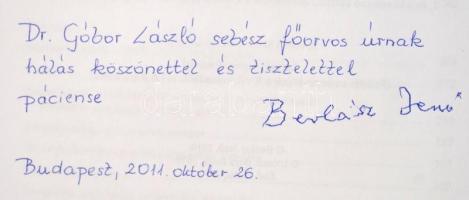 Dr. Góbor László sebész főorvos úrnak
hálás köszönettel és tisztelettel
páciense
Berlász Jenő
Budapest, 2011. október 26.